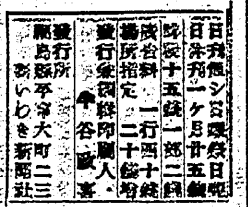 日刊但シ日曜祭日休
日休刊一ケ月廿五銭
郵税十五銭一部二銭
広告料 一行四十銭
場所指定 二十銭増
発行兼編輯印刷人
平谷 喜
発行所
福島県平市大町二三
新いわき新聞社